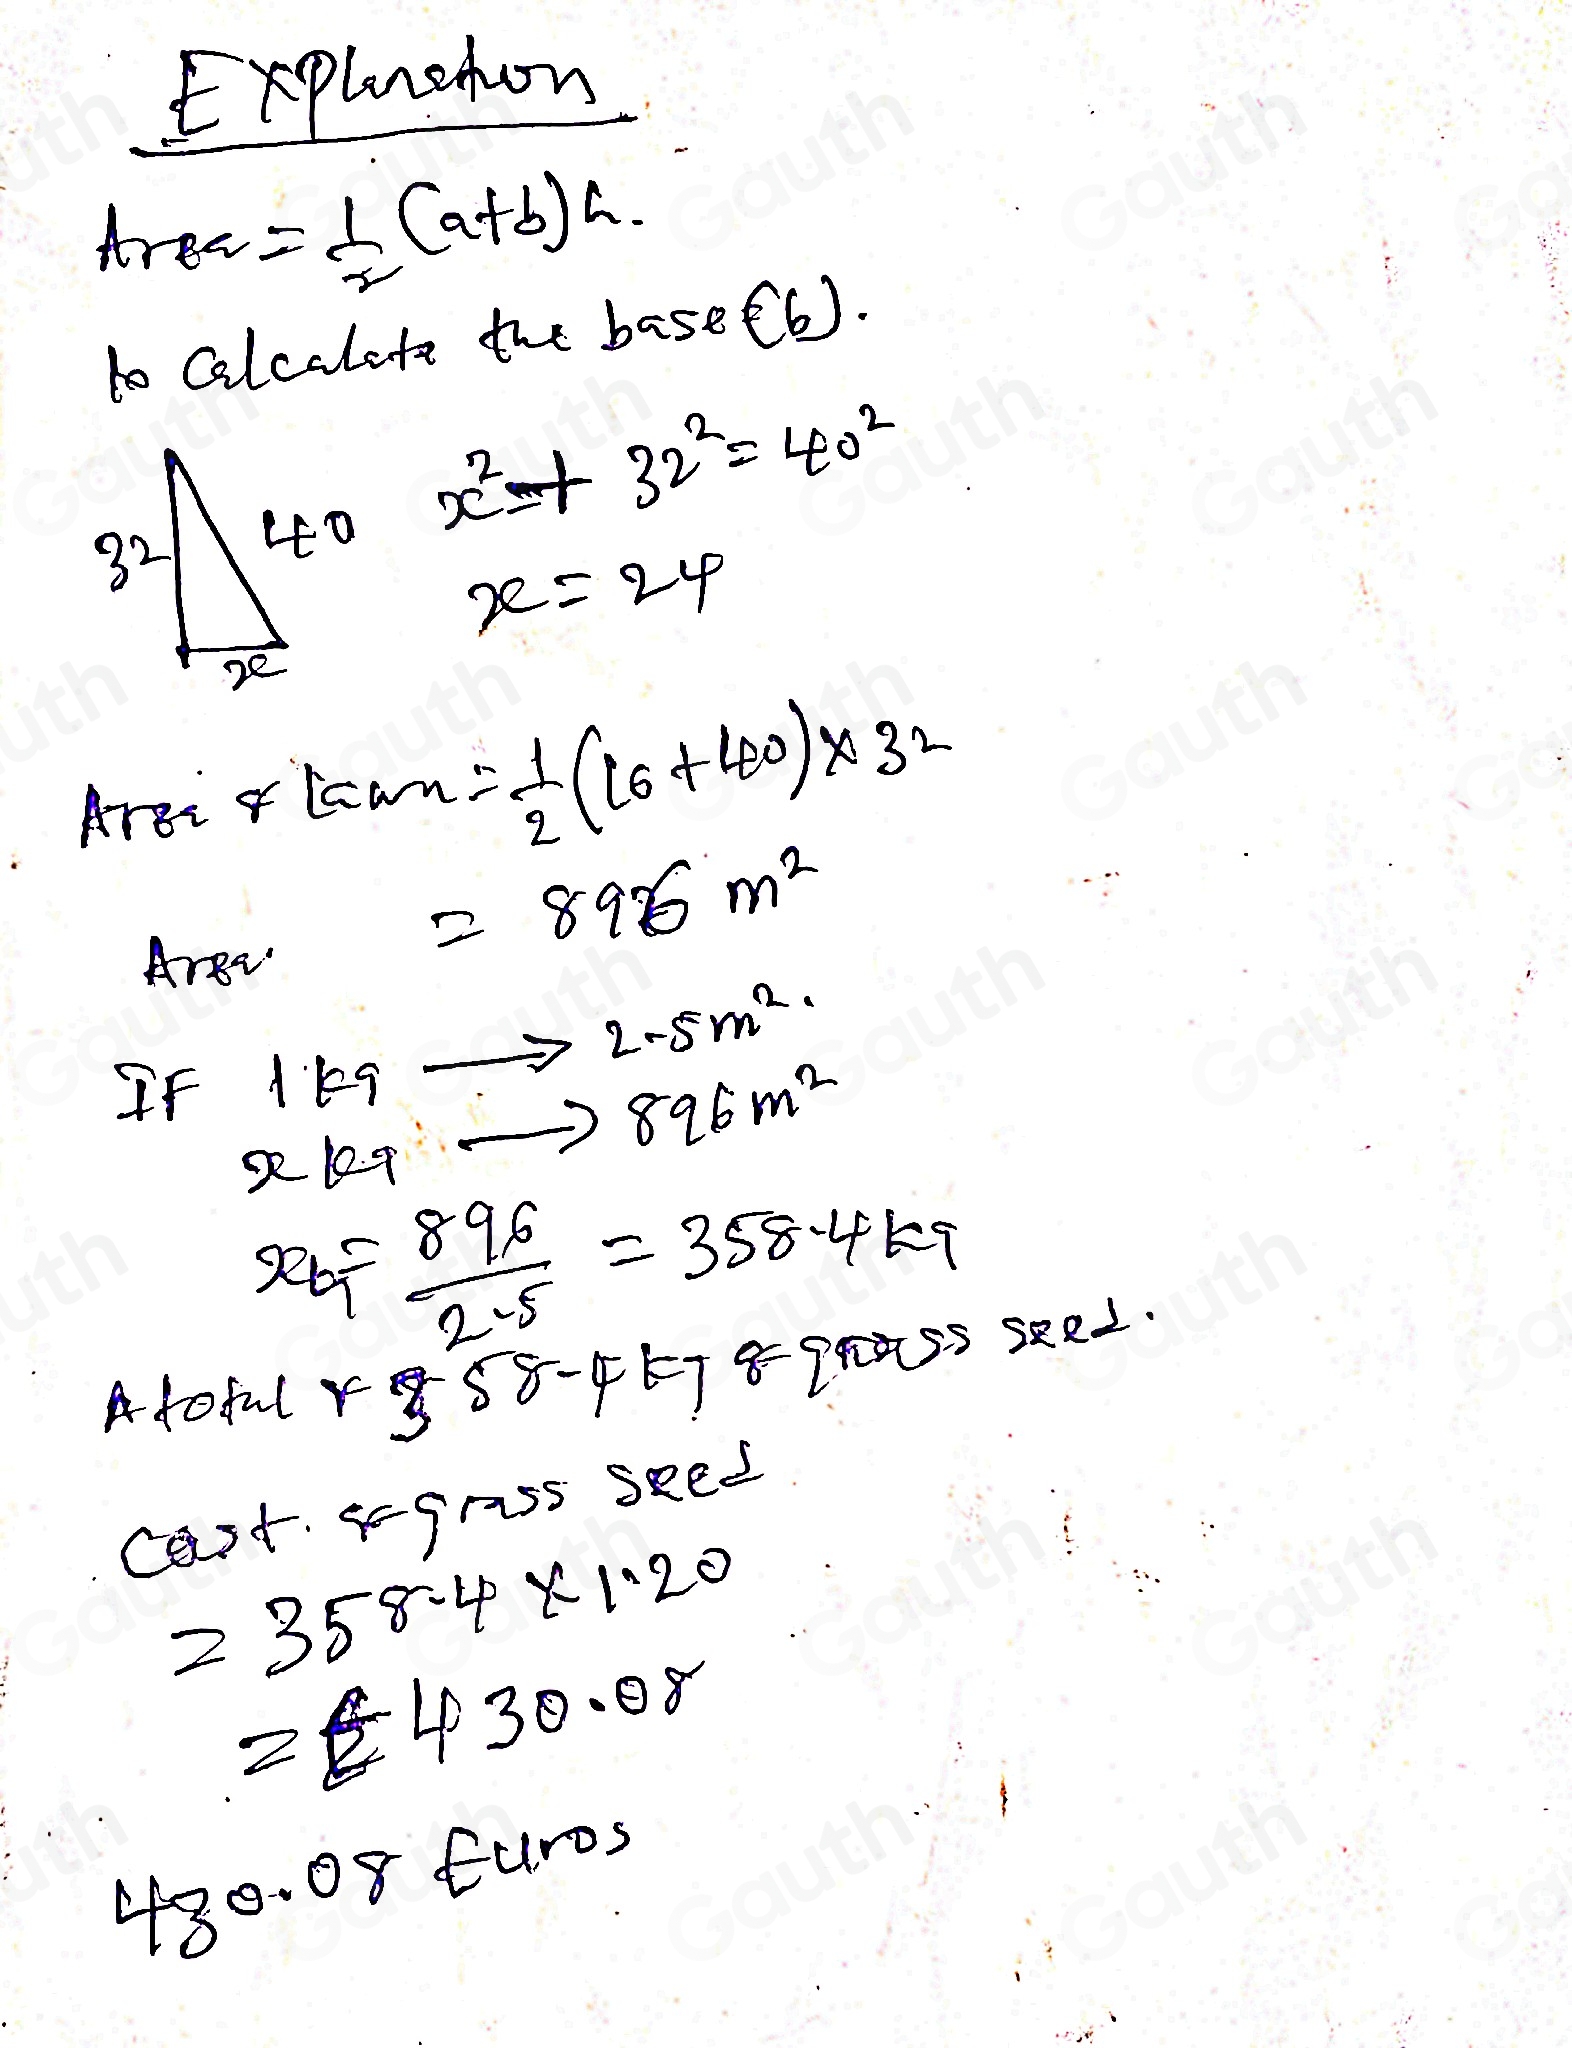 Explanation
Area = 1/2 (a+b)h.
to calculate the base (b).
32 40 x² + 32² = 40²
x x = 24
Area of Lawn = 1/2 (16 + 40) × 32
Area = 896 m²
IF 1 kg → 2.5m².
x kg → 896m²
x kg = 896/2.5 = 358.4 kg
A total of 358.4 kg of grass seed.
Cost of grass seed
= 358.4 × 1.20
= £430.08
430.08 Euros